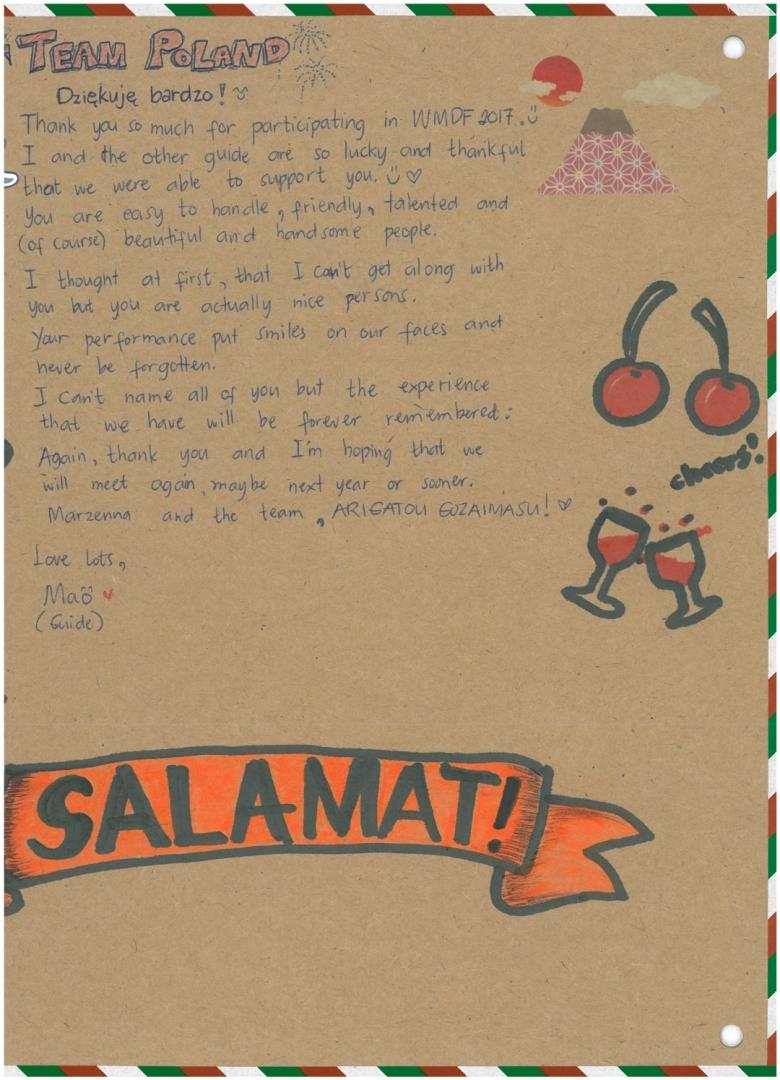 TEAM POLAND
Dziękuję bardzo!
Thank you so much for participating in WMDF 2017.
I and the other guide are so lucky and thankful
that we were able to support you.
You are easy to handle, friendly, talented and
(of course) beautiful and handsome people.
I thought at first, that I can't get along with
you but you are actually nice persons.
Your performance put smiles on our faces and
never be forgotten.
I can't name all of you but the experience
that we have will be forever remembered.
Again, thank you and I'm hoping that we
will meet again, maybe next year or sooner.
Marzenna and the team, ARIGATOU GOZAIMASU!
Love lots,
Mao
(Guide)
cheers!
SALAMAT!